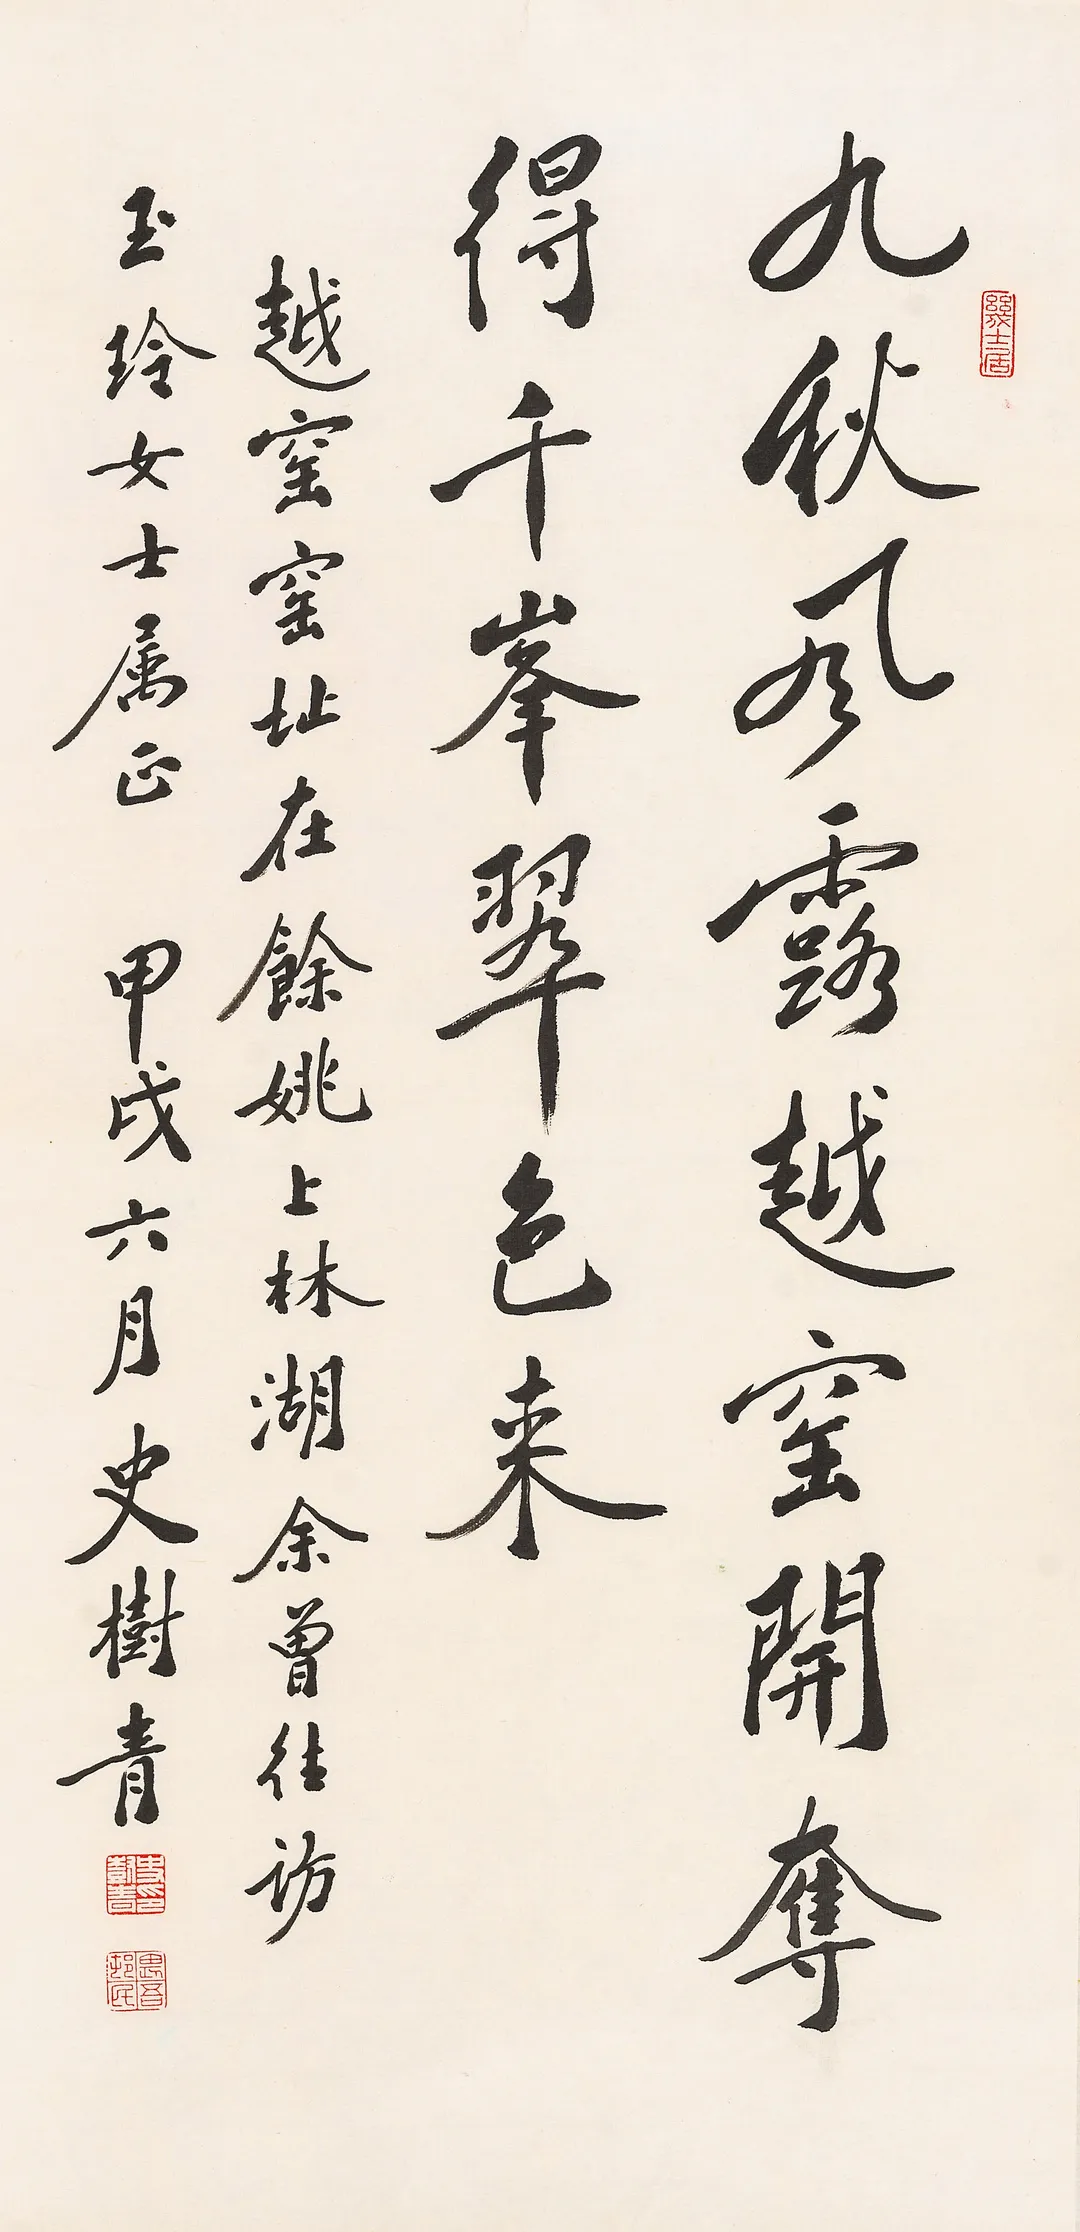 九秋风露越窑開奪
得千峯翠色来
越窑窑址在餘姚上林湖余曾往访
玉玲女士属正 甲戌六月 史樹青